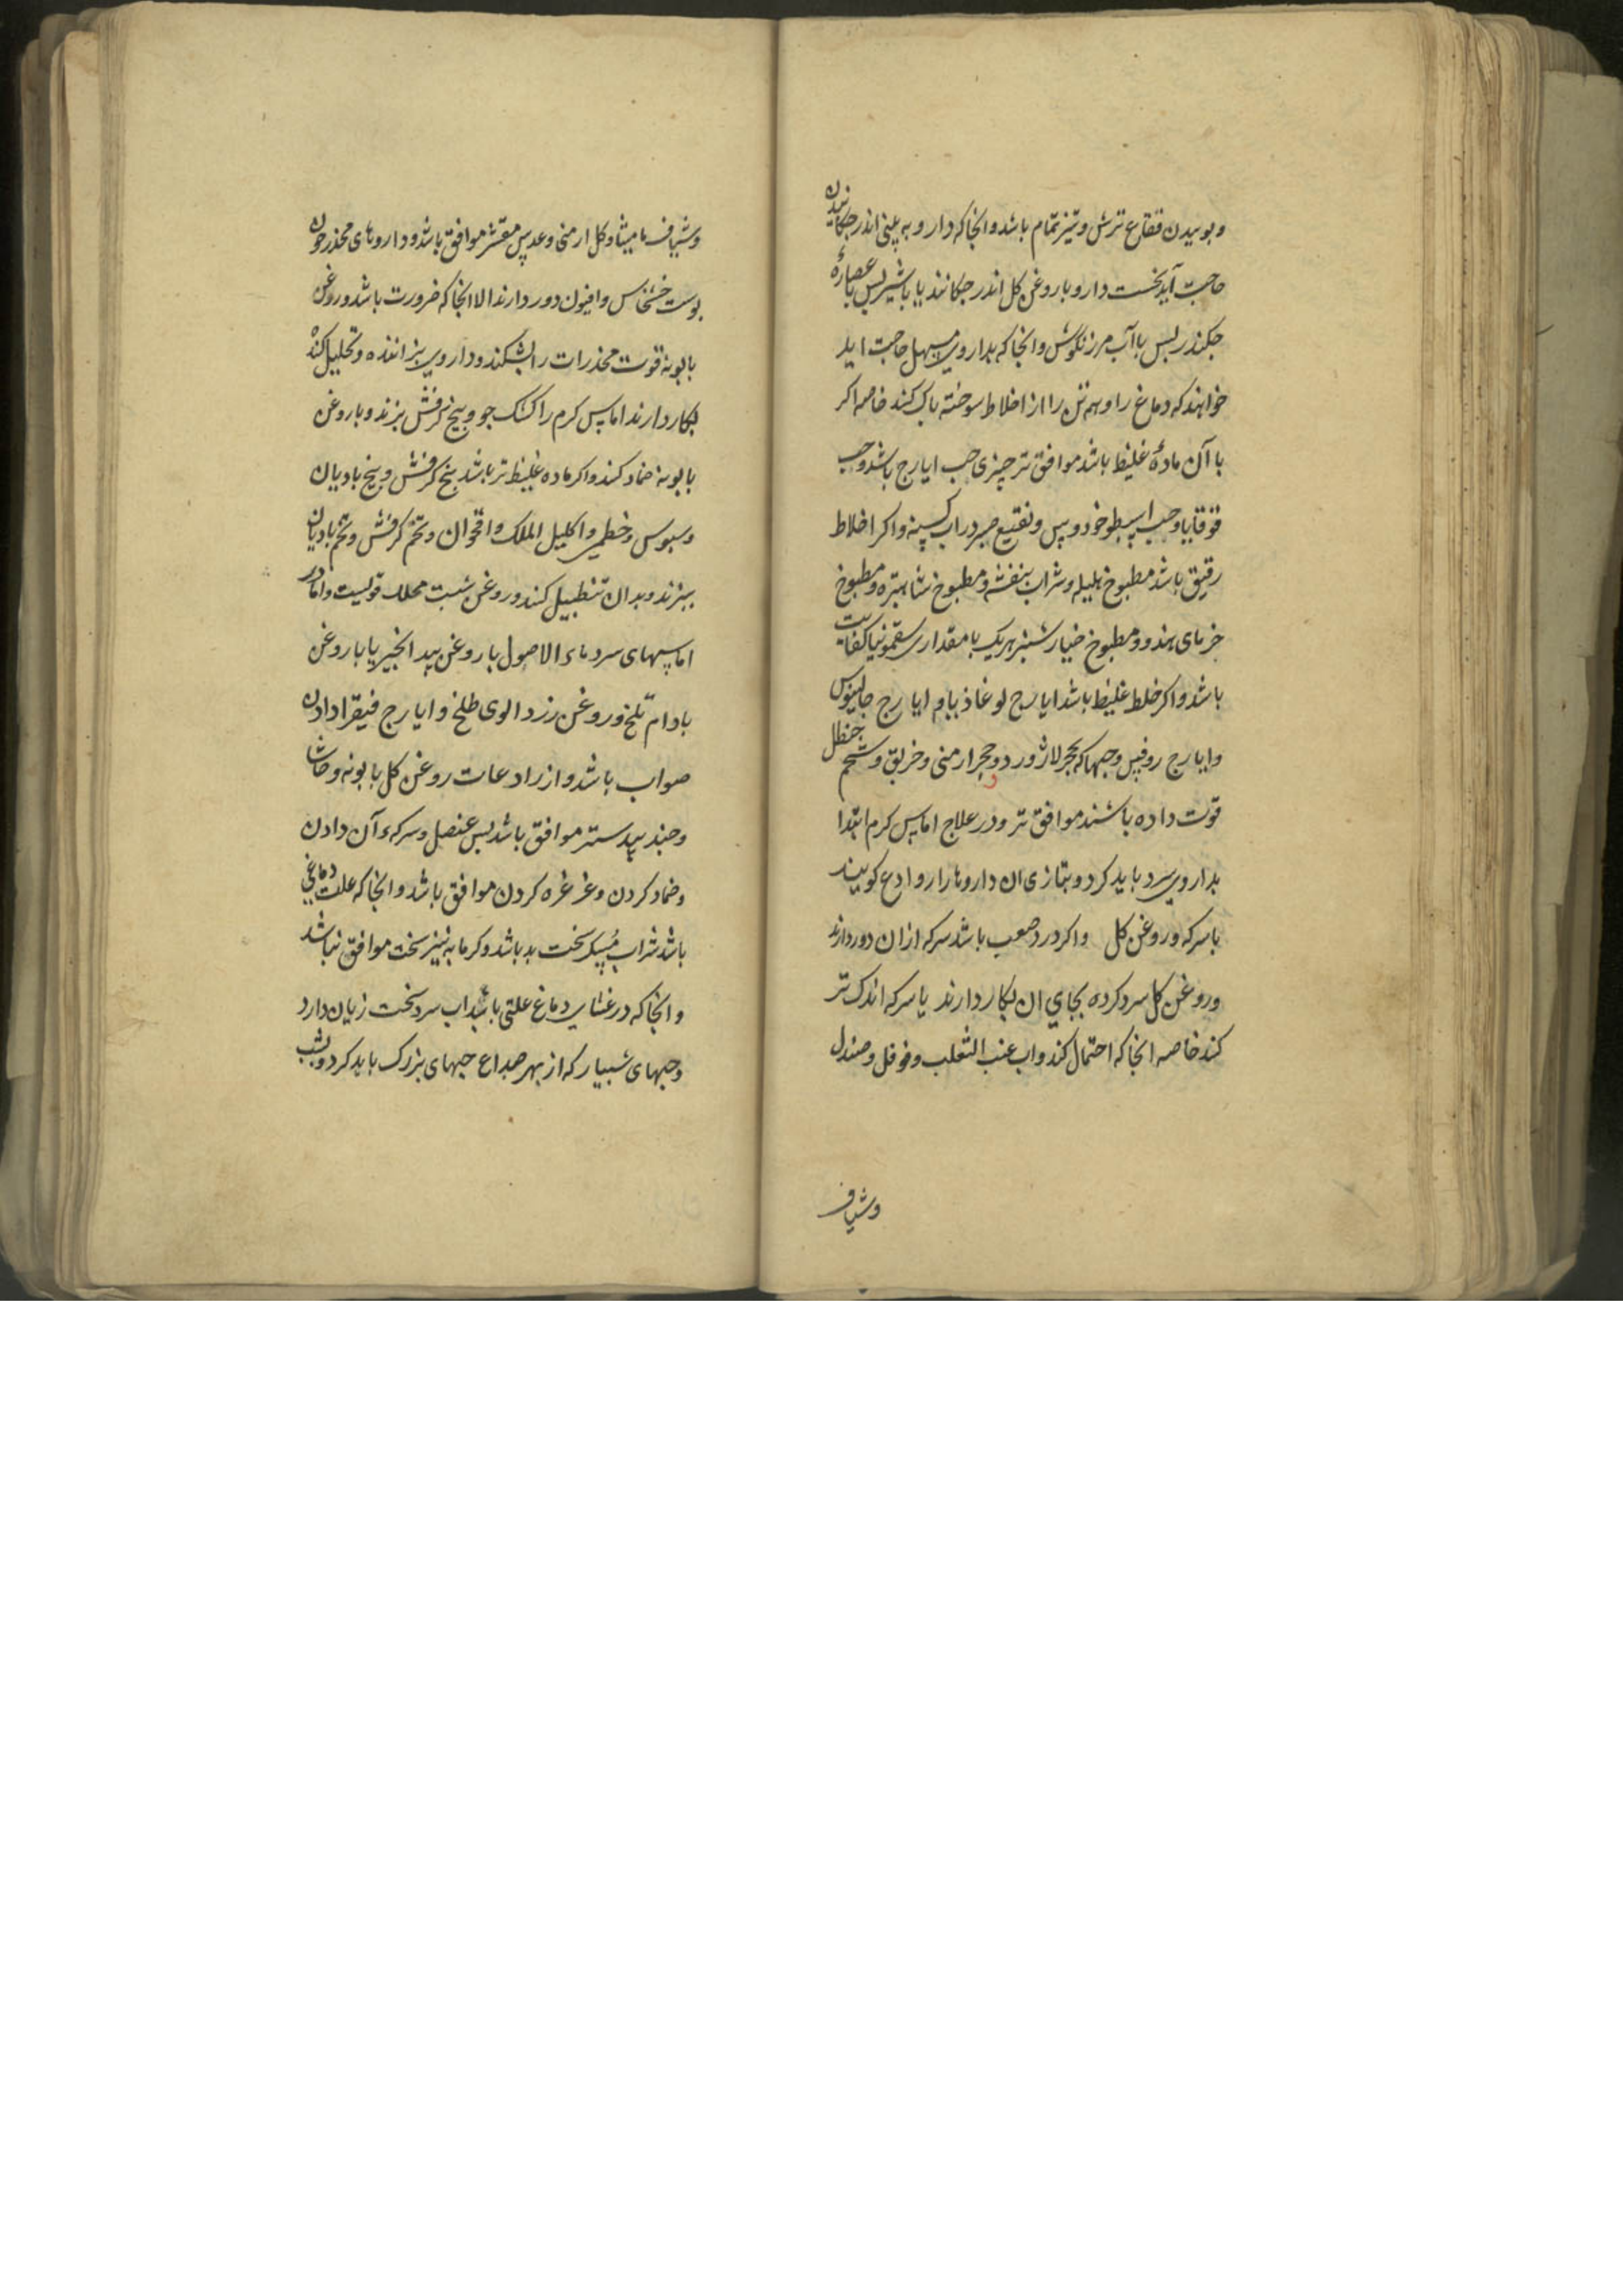 و بوییدن فقاع ترش و تیز تمام باشد و انجا که دارو به بینی اندر جکانیدن
حاجت آید نخست دارو با روغن کل اندر جکانند یا با شیر پس با عصارهٔ
جکندر پس با آب مرزنکوش و انجا که بداروی مسهل حاجت اید
خواهند که دماغ را و همه تن را از اخلاط سوخته باک کنند خاصه اکر
با آن مادهٔ غلیظ باشد موافق تر چیزی حب ایارج باشد و حب
قوقایا و حب اسطوخودوس و نقیع صبر در اب کسنه و اکر اخلاط
رقیق باشد مطبوخ هلیله و شراب بنفشه و مطبوخ شاهتره و مطبوخ
خرمای هندو و مطبوخ خیارشنبر هر یک با مقداری سقمونیا کفایت
باشد و اکر خلط غلیظ باشد ایارج لوغاذیا و ایارج جالینوس
و ایارج روفس و حبها که بحجر لاژورد و حجر ارمنی و خربق و شحم حنظل
قوت داده باشند موافق تر و در علاج اماس کرم ابتدا
بداروی سرد باید کرد و بتازی ان داروها را روادع کویند
با سرکه و روغن کل واکر درد صعب باشد سرکه ازان دور دارند
و روغن کل سرد کرده بجای ان بکار دارند یا سرکه اندک تر
کند خاصه انجا که احتمال کند و اب عنب الثعلب و فوفل و صندل
وشیاف
وشیاف مامیثا و کل ارمنی و عدس مقشر موافق باشد و داروهای مخدر جون
بوست خشخاس و افیون دور دارند الا انجا که ضرورت باشد و روغن
بابونه قوت مخدرات را بشکند و داروی بزاننده و تحلیل کننده
بکار دارند اماس کرم را کشک جو و بیخ کرفش بزند و با روغن
بابونه ضماد کنند و اکر ماده غلیظ تر باشد بیخ کرفش و بیخ بادیان
و سبوس و خطمی و اکلیل الملک و اقحوان و تخم کرفش و تخم بادیان
ببزند و بدان تنطیل کنند و روغن شبت محلل قویست و اما در
اماسهای سرد ماء الاصول با روغن بید انجیر یا با روغن
بادام تلخ و روغن زرد الوی طلخ و ایارج فیقرا دادن
صواب باشد و از رادعات روغن کل بابونه و حاشا
و جند بیدستر موافق باشد پس عنصل و سرکه ء آن دادن
و ضماد کردن و غرغره کردن موافق باشد و انجا که علت دماغی
باشد شراب مسکر سخت بد باشد و کرمابه نیز سخت موافق نباشد
و انجا که در غشای دماغ علتی باشد اب سرد سخت زیان دارد
و حبهای شبیار که از بهر صداع حبهای بزرک باید کرد و بشب